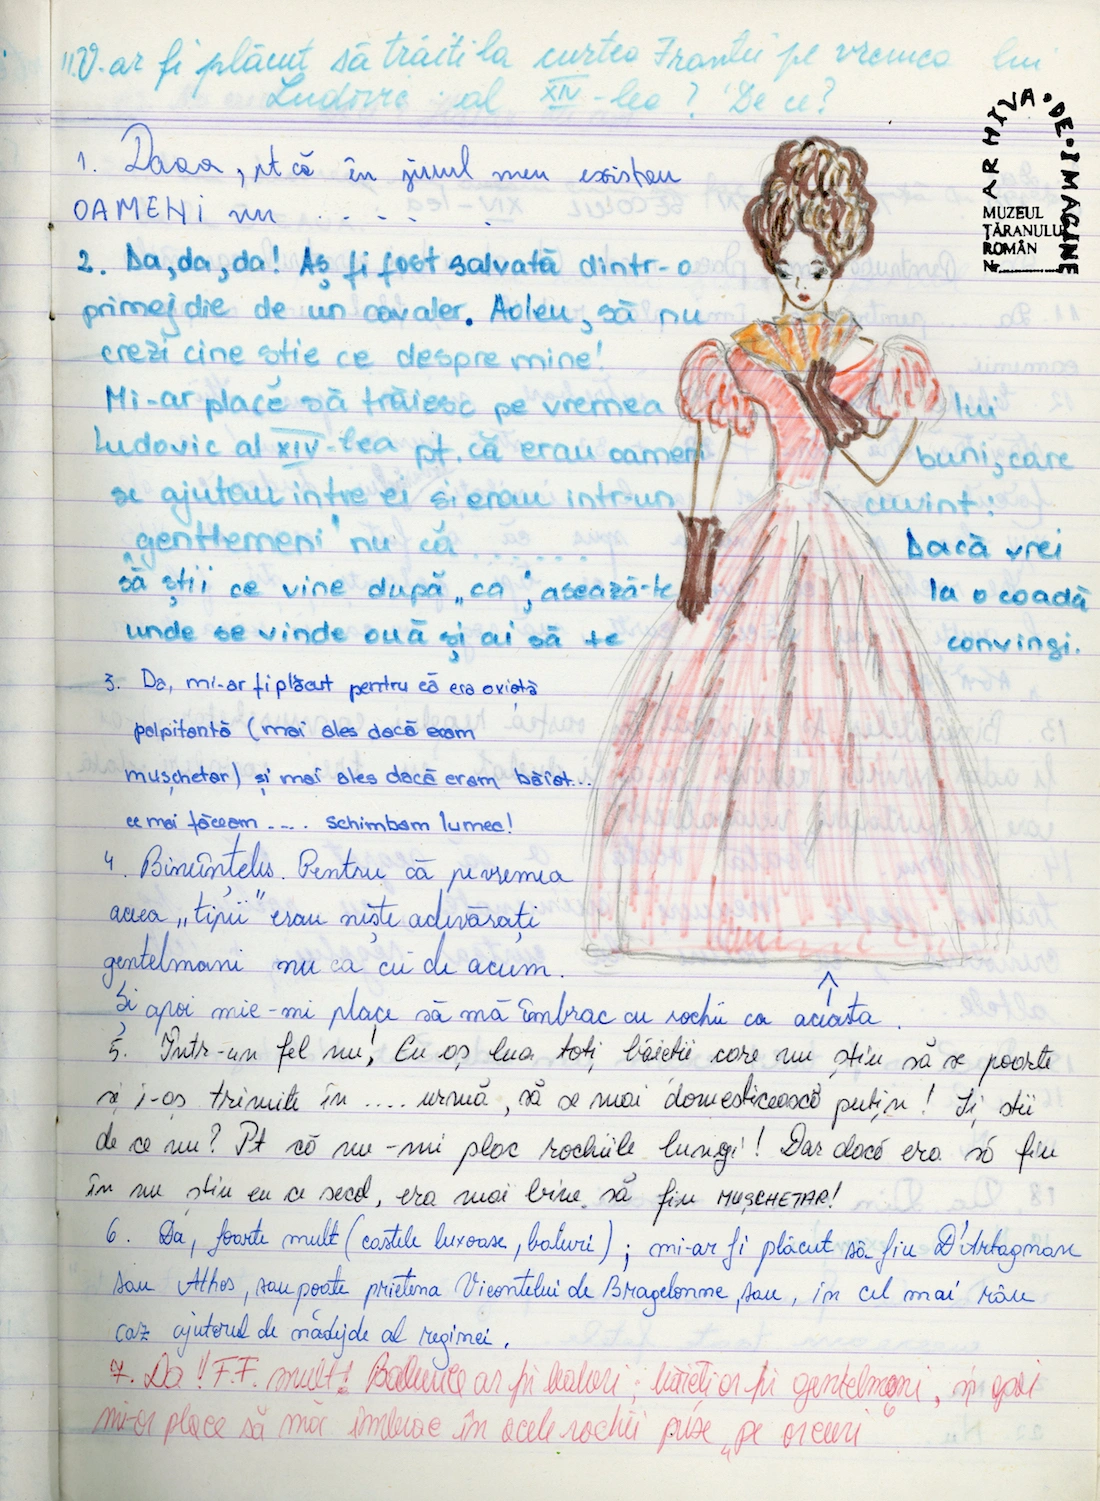 11. V-ar fi plăcut să trăiți la curtea Franței pe vremea lui
Ludovic al XIV-lea? De ce?
ARHIVA·DE·IMAGINE
MUZEUL
ȚĂRANULUI
ROMÂN
Nr.
1. Daaa, pt că în jurul meu existau
OAMENI nu . . . .
2. Da, da, da! Aș fi fost salvată dintr-o
primejdie de un cavaler. Aoleu, să nu
crezi cine știe ce despre mine!
Mi-ar place să trăiesc pe vremea lui
Ludovic al XIV-lea pt. că erau oameni buni, care
se ajutau intre ei si erau intr-un cuvint:
„gentlemeni" nu că . . . . . . Dacă vrei
să știi ce vine după „ca", asează-te la o coadă
unde se vinde ouă și ai să te convingi.
3. Da, mi-ar fi plăcut pentru că era o viață
palpitantă (mai ales dacă eram
mușchetar) și mai ales dacă eram băiat...
ce mai făceam .... schimbam lumea!
4. Bineînțeles. Pentru că pe vremea
aceea „tipii" erau niște adevărați
gentelmani nu ca cei de acum.
Și apoi mie-mi place să mă îmbrac cu rochii ca aceasta.
5. Într-un fel nu! Eu aș lua toți băieții care nu știu să se poarte
și i-aș trimite în .... urmă, să se mai domesticească puțin! Și știi
de ce nu? Pt că nu-mi plac rochiile lungi! Dar dacă era să fiu
în nu știu eu ce secol, era mai bine să fiu MUȘCHETAR!
6. Da, foarte mult (castele luxoase, baluri); mi-ar fi plăcut să fiu D'Artagnan
sau Athos, sau poate prietena Vicontelui de Bragelonne, sau, in cel mai rău
caz ajutorul de nădejde al reginei.
7. Da! F.F. mult! Balurile ar fi baluri; băieții ar fi gentelmani, și apoi
mi-ar place să mă îmbrac în acele rochii puse „pe arcuri"